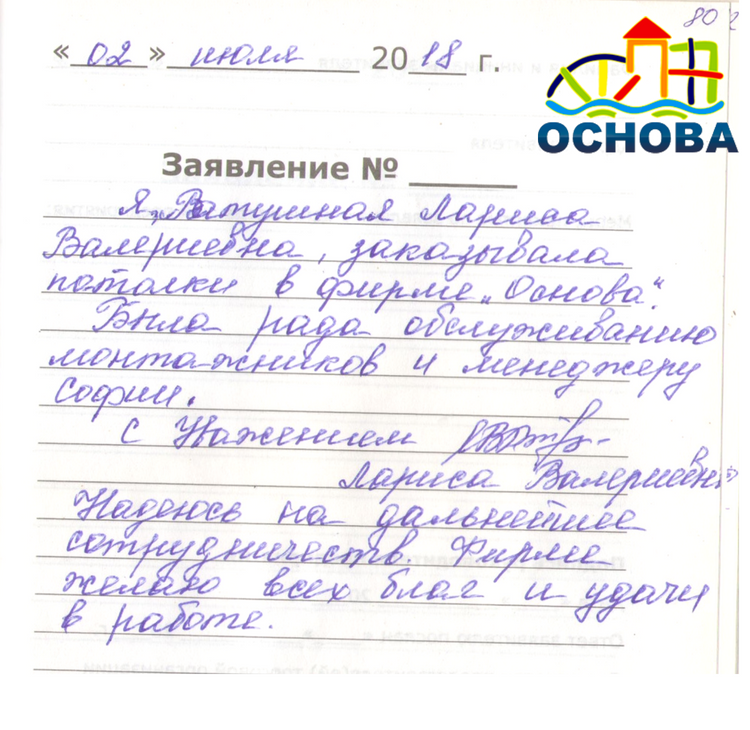 80
« 02 » июля 2018 г.
ОСНОВА
Заявление №
Я, Лариса
Валериевна, заказывала
потолки в фирме „Основа".
Была рада обслуживанию
монтажников и менеджеру
Софии.
С Уважением
Лариса Валериевна
Надеюсь на дальнейшее
сотрудничеств. Фирме
желаю всех благ и удачи
в работе.